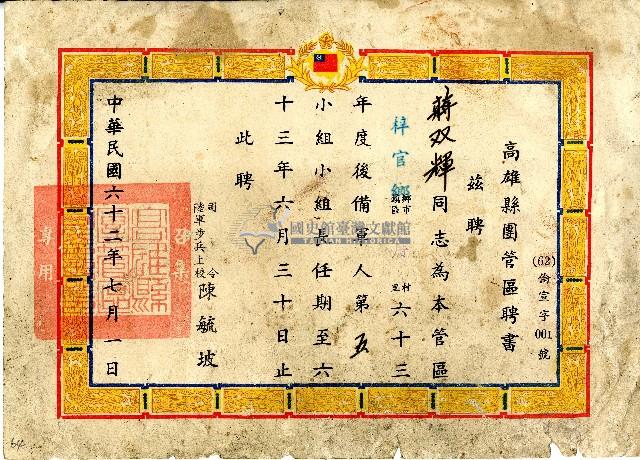 高雄縣團管區聘書
(62)
宣字
001
號
茲聘
蔣双輝同志為本管區
梓官鄉
鄉市
鎮區
村
里
六十三
年度後備軍人第五
小組小組長任期至六
十三年六月三十日止
此聘
司令
陸軍步兵上校
陳毓坡
中華民國六十二年七月一日
召集
專用
國史館臺灣文獻館
TAIWAN HISTORICA
64